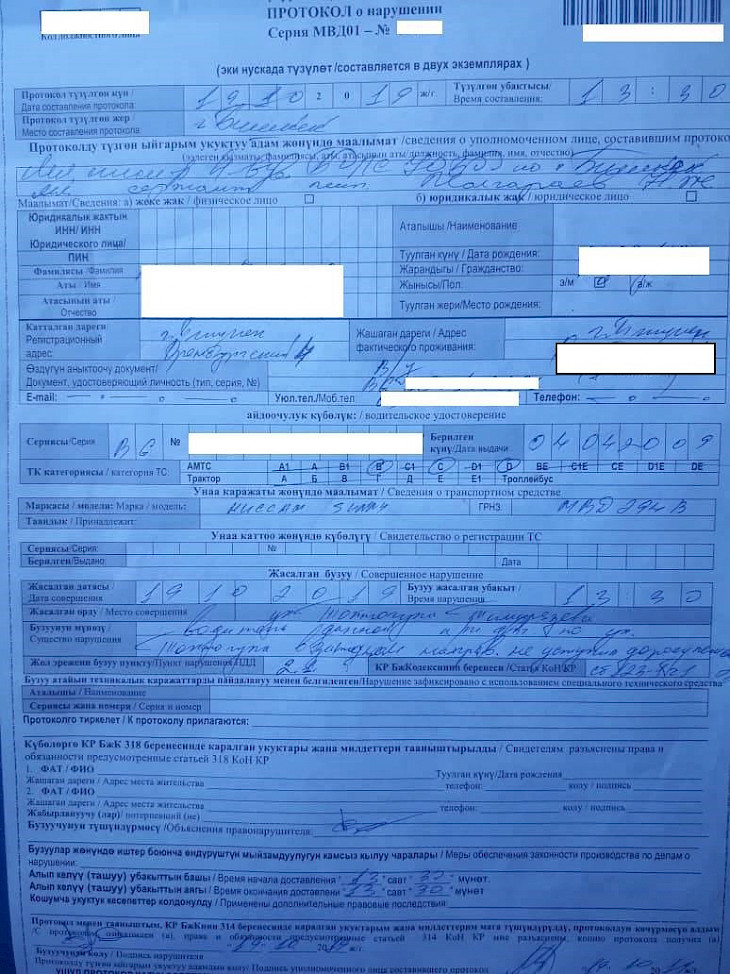 ПРОТОКОЛ о нарушении
Серия МВД01 – №
Код должностного лица
(эки нускада түзүлөт /составляется в двух экземплярах )
Протокол түзүлгөн күн / Дата составления протокола: 19 10 2019 ж/г Түзүлгөн убактысы/ Время составления: 13 : 30
Протокол түзүлгөн жер/ Место составления протокола: г. Бишкек
Протоколду түзгөн ыйгарым укуктуу адам жөнүндө маалымат /сведения о уполномоченном лице, составившим протокол
(ээлеген кызматы, фамилиясы, аты, атасынын аты должность, фамилия, имя, отчество)
Маалымат/Сведения: а) жеке жак / физическое лицо б) юридикалык жак / юридическое лицо
Юридикалык жактын ИНН/ ИНН Юридического лица/ Аталышы /Наименование
ПИН Туулган күнү / Дата рождения:
Фамилиясы /Фамилия Жарандыгы / Гражданство:
Аты / Имя Жынысы/Пол: э/м ж/ж
Атасынын аты / Отчество Туулган жери/Место рождения:
Катталган дареги Регистрационный адрес: Жашаган дареги / Адрес фактического проживания:
Өздүгүн аныктоочу документ/ В/у
Документ, удостоверяющий личность (тип, серия, №)
E-mail: Уюл.тел./Моб.тел Телефон:
айдоочулук күбөлүк: / водительское удостоверение
Сериясы/Серия BG № Берилген күнү/Дата выдачи 04042009
ТК категориясы / категория ТС: АМТС А1 А В1 В С1 С D1 D BE С1Е СЕ D1E DE
Трактор А Б В Г Д Е Е1 Троллейбус
Унаа каражаты жөнүндө маалымат / Сведения о транспортном средстве
Маркасы / модели: Марка / модель: Ниссан Sunny ГРНЗ
Таандык / Принадлежит:
Унаа каттоо жөнүндө күбөлүгү / Свидетельство о регистрации ТС
Сериясы /Серия: №
Берилген/Выдано Дата
Жасалган бузуу / Совершенное нарушение
Жасалган датасы / Дата совершения 19 10 2019 Бузуу жасалган убакыт / Время нарушения: 13 : 30
Жасалган орду / Место совершения ул. Токтогула – Тимирязева
Бузуунун мүнөзү / Существо нарушения водитель данной а/м по ул.
Токтогула не уступил дорогу
Жол эрежени бузуу пункту/Пункт нарушения ПДД КР БжКодексинин беренеси / Статья КоН КР
Бузуу атайын техникалык каражаттарды пайдалануу менен белгиленген/Нарушение зафиксировано с использованием специального технического средства
Аталышы / Наименование
Сериясы жана номери / Серия и номер
Протоколго тиркелет / К протоколу прилагаются:
Күбөлөргө КР БжК 318 беренесинде каралган укуктары жана милдеттери таанышtырылды / Свидетелям разъяснены права и
обязанности предусмотренные статьей 318 КоН КР
1. ФАТ / ФИО Туулган күнү/Дата рождения
Жашаган дареги / Адрес места жительства телефон: колу / подпись
2. ФАТ / ФИО
Жашаган дареги / Адрес места жительства телефон: колу / подпись
Жабырлануучу (лар)/ потерпевший (не)
Бузуучунун түшүндүрмөсү /Объяснения правонарушителя:
Бузуулар жөнүндө иштер боюнча өндүрүштүн мыйзамдуулугун камсыз кылуу чаралары / Меры обеспечения законности производства по делам о
нарушении:
Алып келүү (ташуу) убакыттын башы / Время начала доставления " 13 " саат " 30 " мүнөт.
Алып келүү (ташуу) убакыттын аягы / Время окончания доставлени " 13 " саат " 30 " мүнөт
Кошумча укуктук кесепеттер колдонулду / Применены дополнительные правовые последствия:
Протокол менен тааныштым, КР БжКнин 314 беренесинде каралган укуктарым жана милдеттерим мага түшүндүрүлдү, протоколдун көчүрмөсүн алдым
/С протоколом ознакомлен (а), права и обязанности предусмотренные статьей 314 КоН КР мне разъяснены, копию протокола получил (а)
Бузуучунун колу / Подпись нарушителя
Протоколду түзгөн ыйгарым укуктуу адамдын колу/ Подпись уполномоченного лица составившего протокол